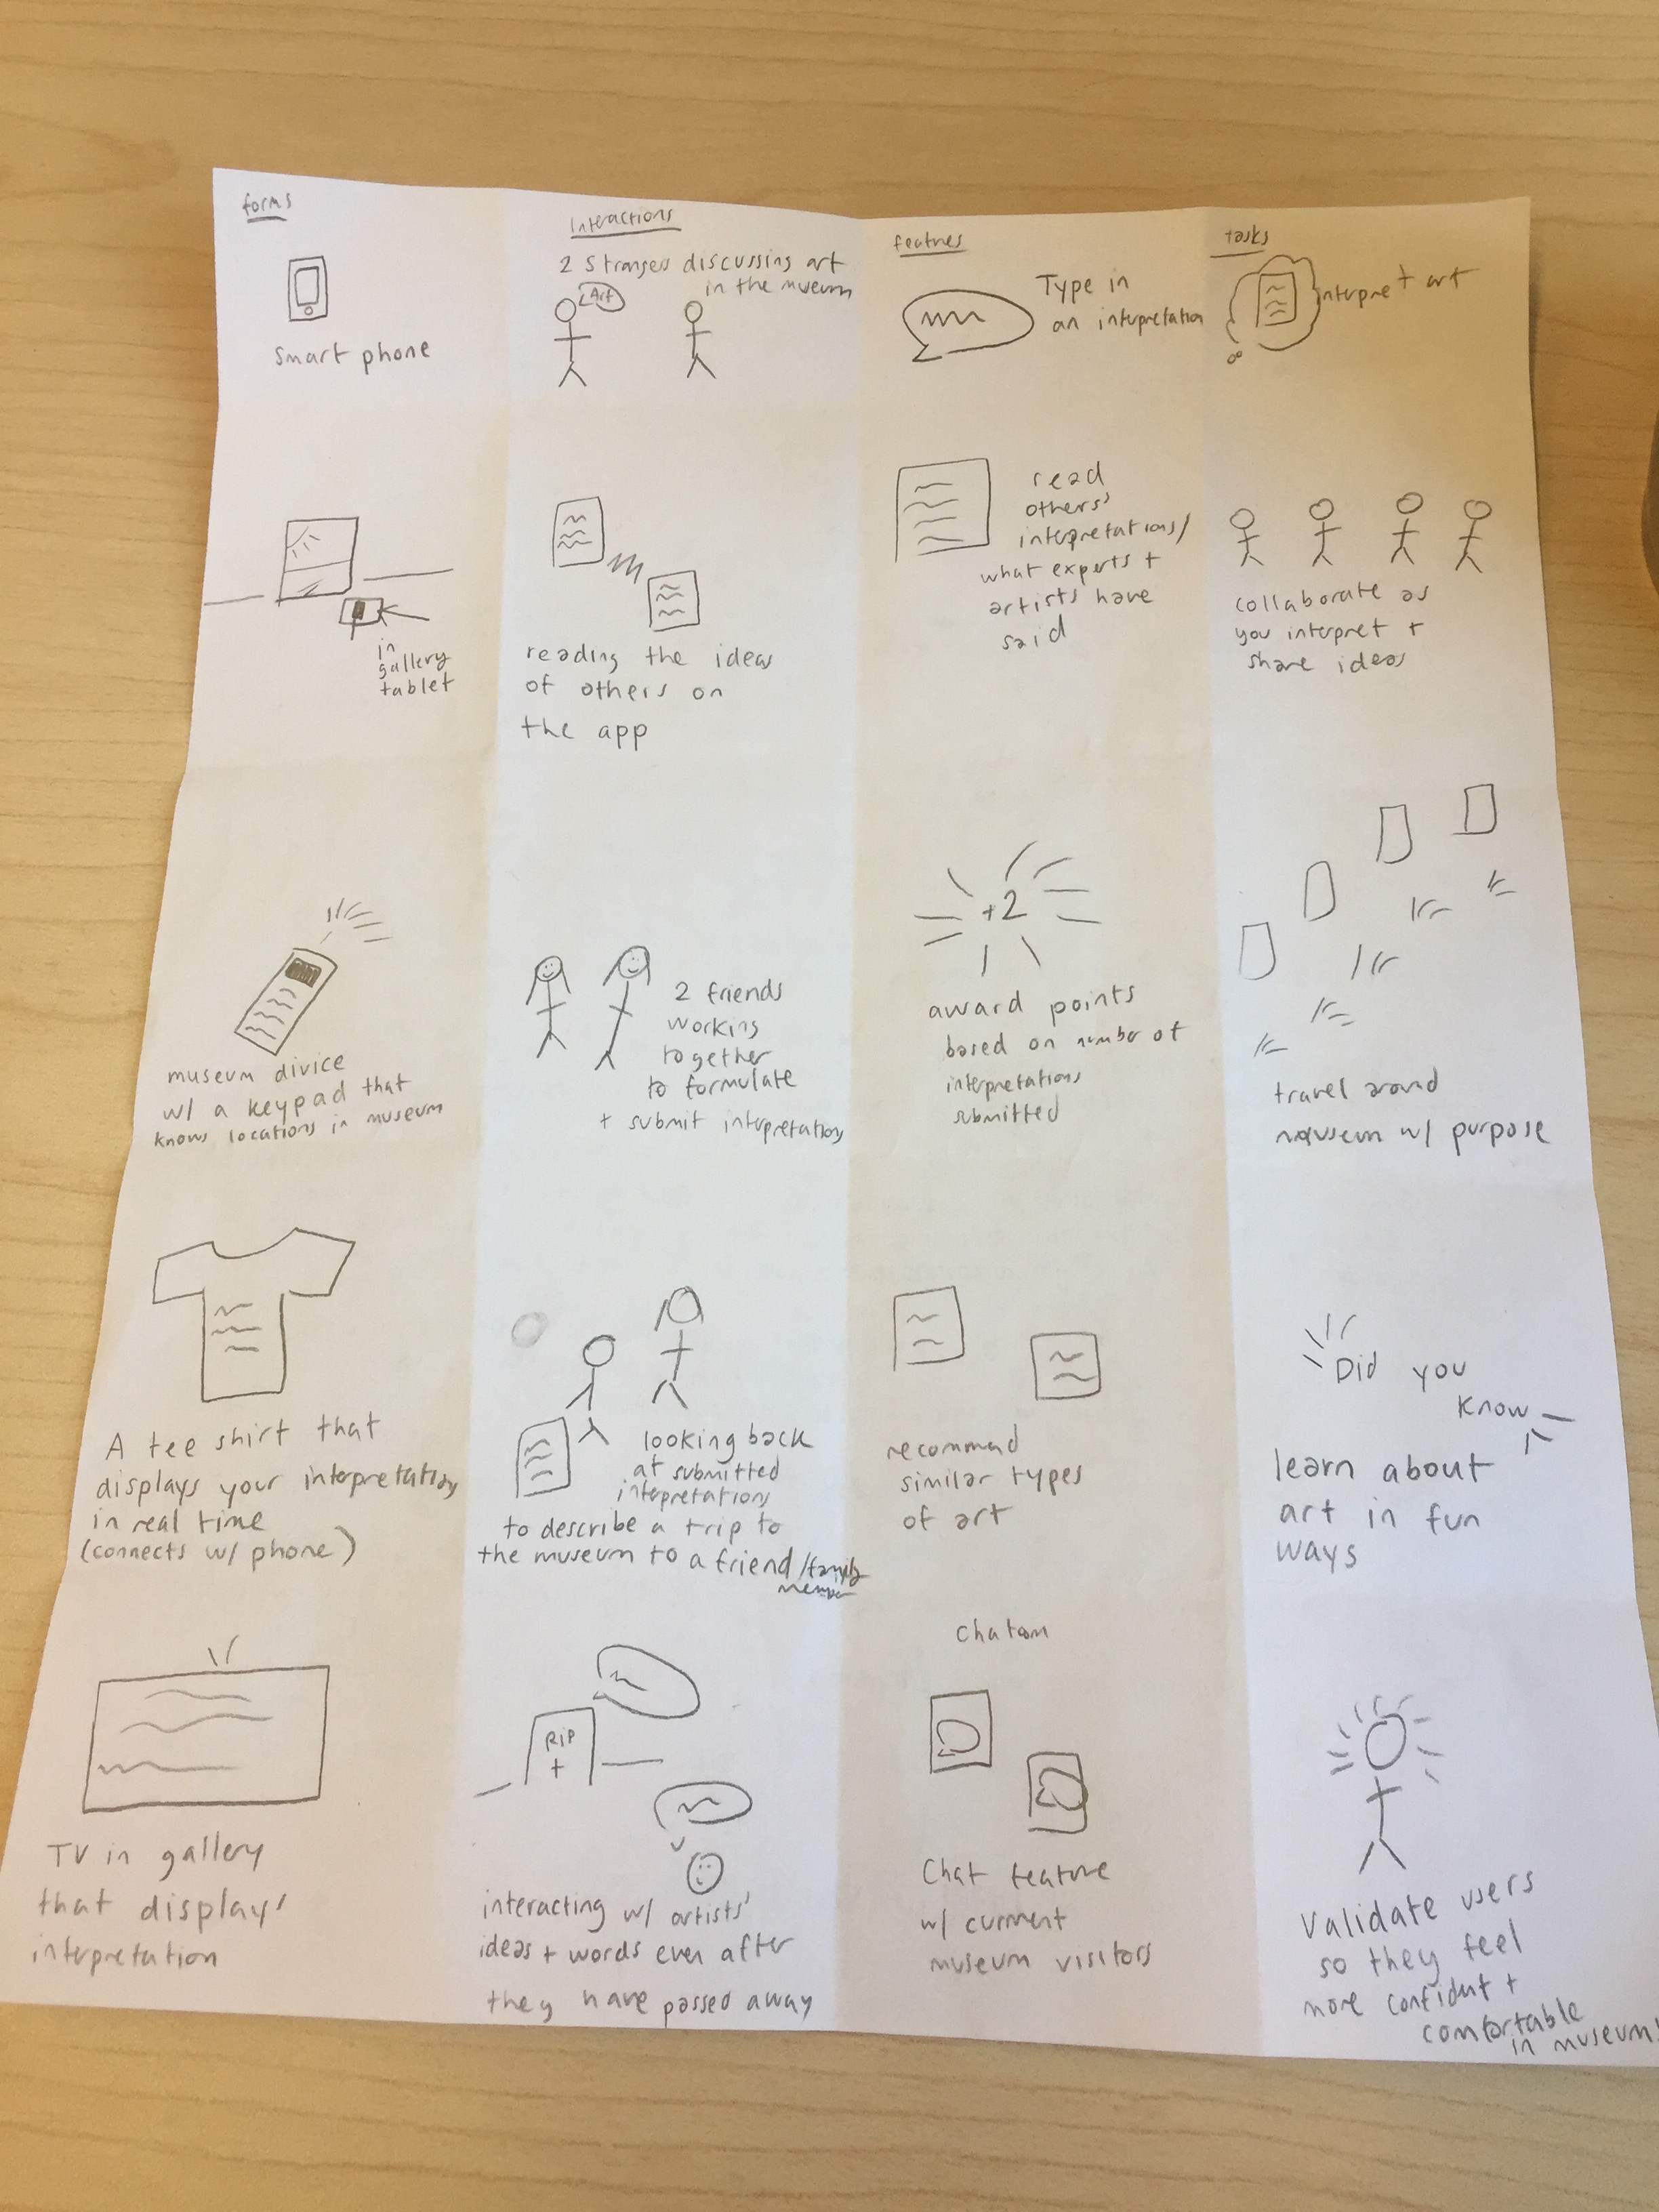 forms
smart phone
in
gallery
tablet
museum divice
w/ a keypad that
knows locations in museum
A tee shirt that
displays your interpretation
in real time
(connects w/ phone)
TV in gallery
that displays
interpretation
Interactions
2 strangers discussing art
in the museum
Art
reading the ideas
of others on
the app
2 friends
working
together
to formulate
+ submit interpretations
looking back
at submitted
interpretations
to describe a trip to
the museum to a friend/family
member
RIP
+
interacting w/ artists'
ideas + words even after
they have passed away
features
Type in
an interpretation
read
others'
interpretations/
what experts +
artists have
said
+2
award points
based on number of
interpretations
submitted
recommend
similar types
of art
Chat feature
w/ current
museum visitors
tasks
interpret art
collaborate as
you interpret +
share ideas
travel around
museum w/ purpose
Did you
know
learn about
art in fun
ways
Validate users
so they feel
more confident +
comfortable
in museum!